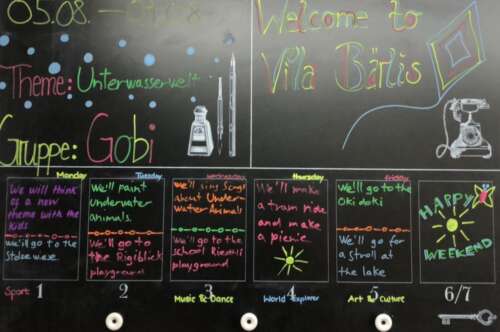 05.08. –
Welcome to
Villa Bärlis
Theme: Unterwasserwelt
Gruppe: Gobi
Monday
We will think
of a new
theme with the
kids
we'll go to the
Tuesday
We'll paint
underwater
animals.
We'll go to
the Rigiblick
playground
wednesday
We'll sing Songs
about Under-
Water Animals
We'll go to the
school
playground
thursday
We'll make
a tram ride
and make
a picnic.
friday
We'll go to the
Oki doki
We'll go for
a stroll at
the lake
HAPPY
WEEKEND
Sport 1
2
3
4
5
6/7
Music & Dance
World Explorer
Art & Culture